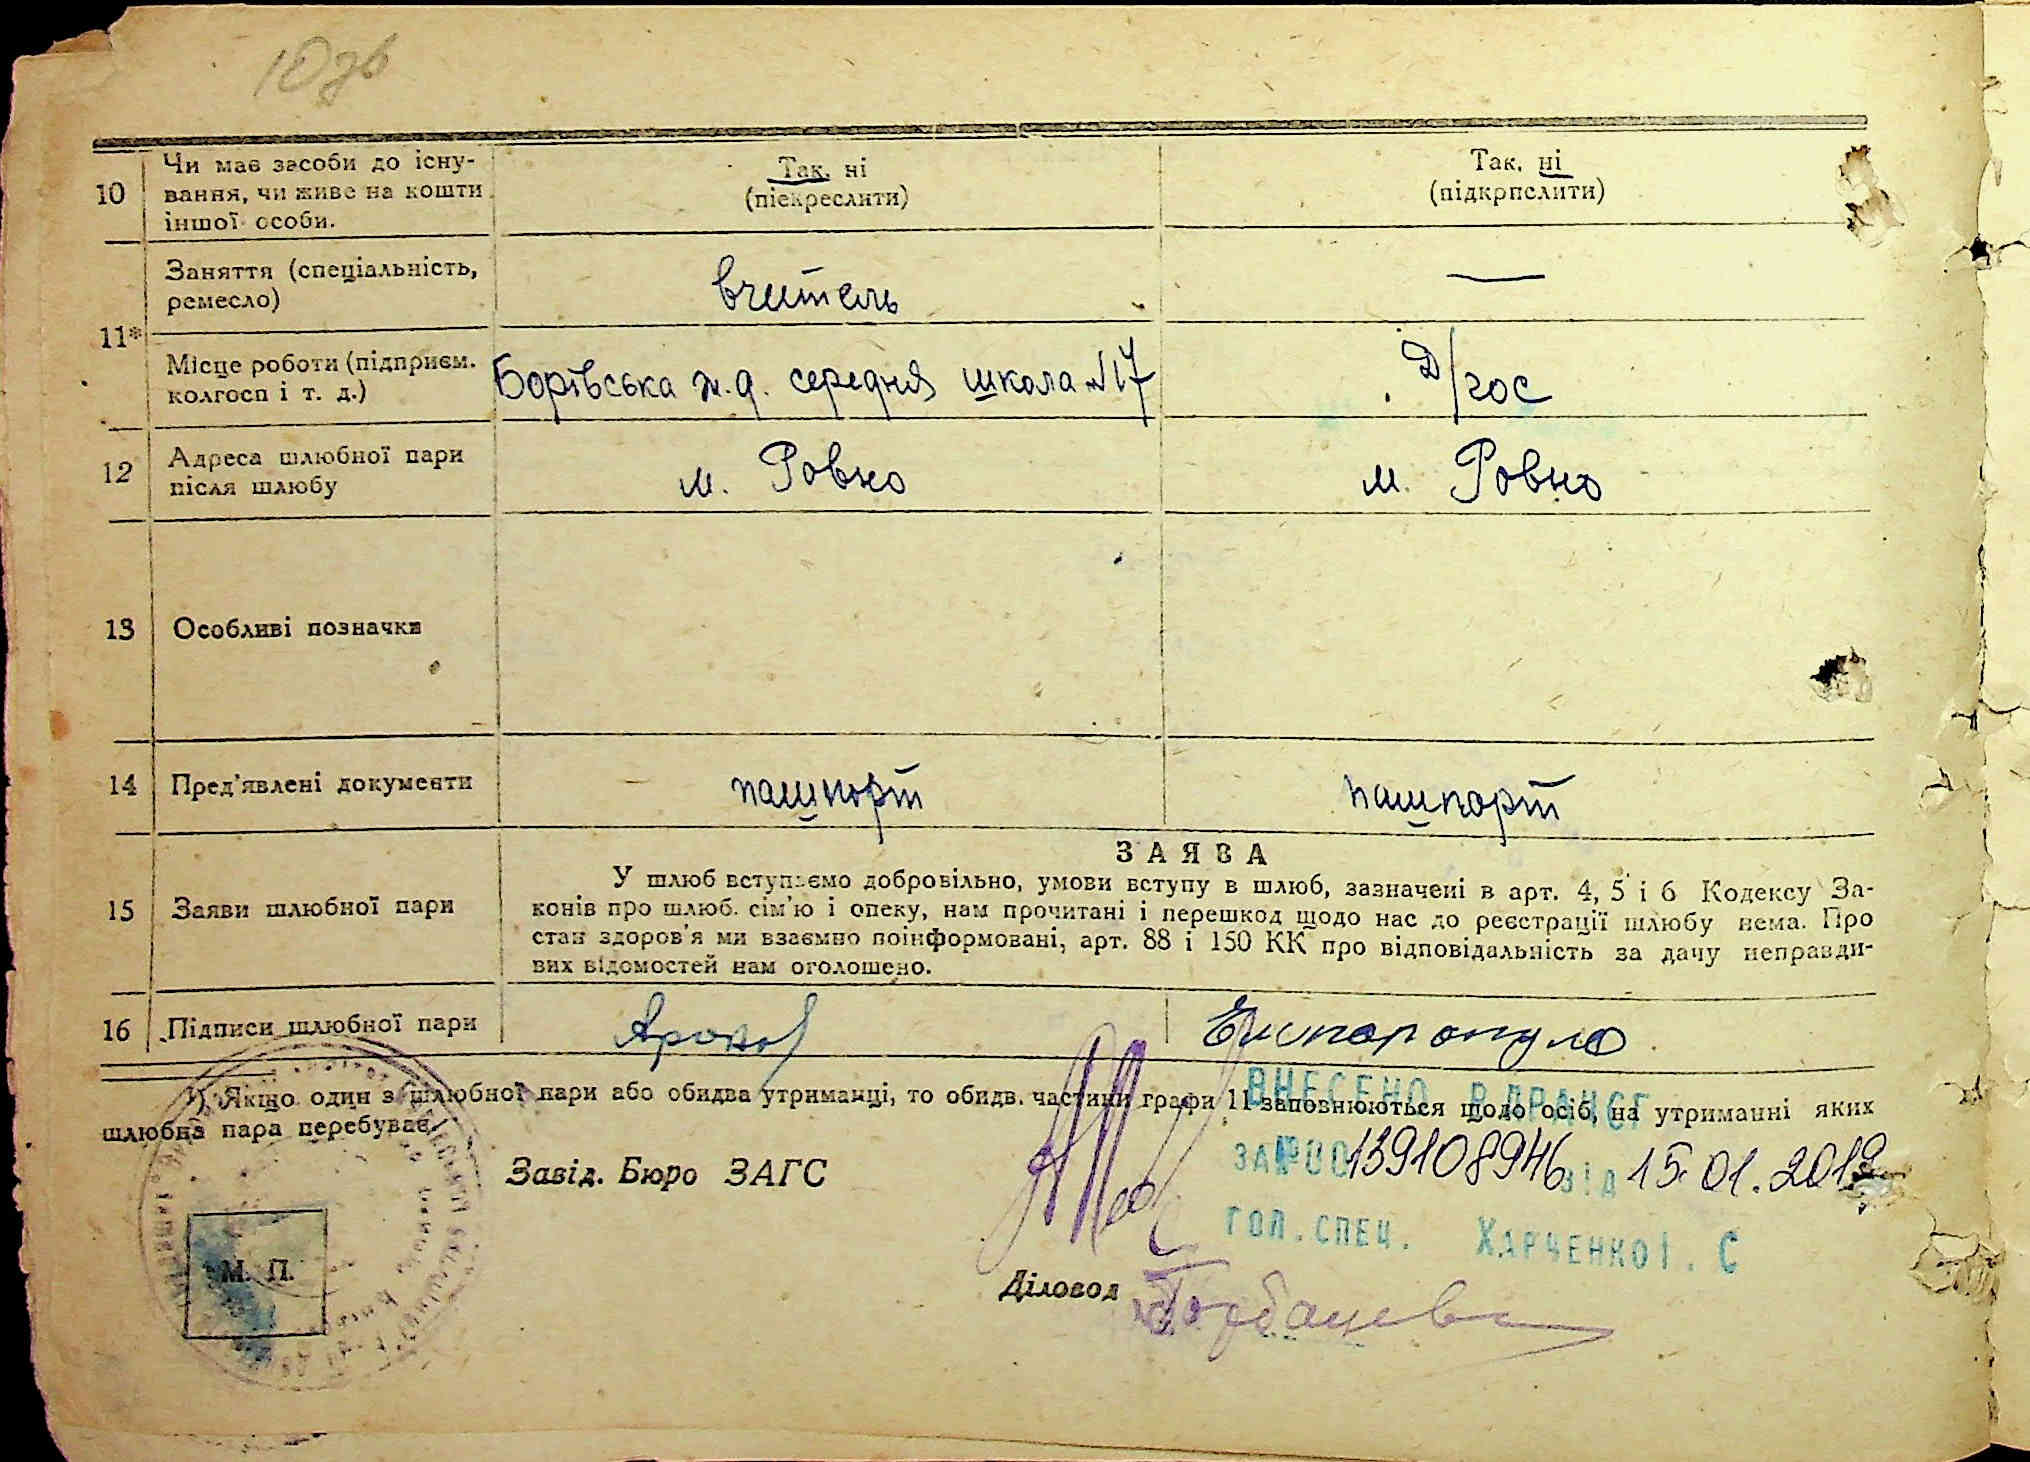 10зв
10 Чи має засоби до існу- Так, ні Так, ні
вання, чи живе на кошти (піекреслити) (підкрпслити)
іншої особи.
Заняття (спеціальність, вчитель —
ремесло)
11*
Місце роботи (підприєм. Борівська ж.д. середня школа №17 Д/гос
колгосп і т. д.)
12 Адреса шлюбної пари м. Ровно м. Ровно
після шлюбу
13 Особливі позначки
14 Пред'явлені документи пашпорт пашпорт
ЗАЯВА
15 Заяви шлюбної пари У шлюб вступаємо добровільно, умови вступу в шлюб, зазначені в арт. 4, 5 і 6 Кодексу За-
конів про шлюб. сім'ю і опеку, нам прочитані і перешкод щодо нас до реєстрації шлюбу нема. Про
стан здоров'я ми взаємно поінформовані, арт. 88 і 150 КК про відповідальність за дачу неправди-
вих відомостей нам оголошено.
16 Підписи шлюбної пари
Якщо один з шлюбної пари або обидва утриманці, то обидв. частини графи 11 заповнюються щодо осіб, на утриманні яких
шлюбна пара перебуває.
ВНЕСЕНО В ДРАЦСГ
Завід. Бюро ЗАГС
ЗА №00139108946 від 15.01.2019
ГОЛ. СПЕЦ. ХАРЧЕНКО І. С
Діловод
М. П.